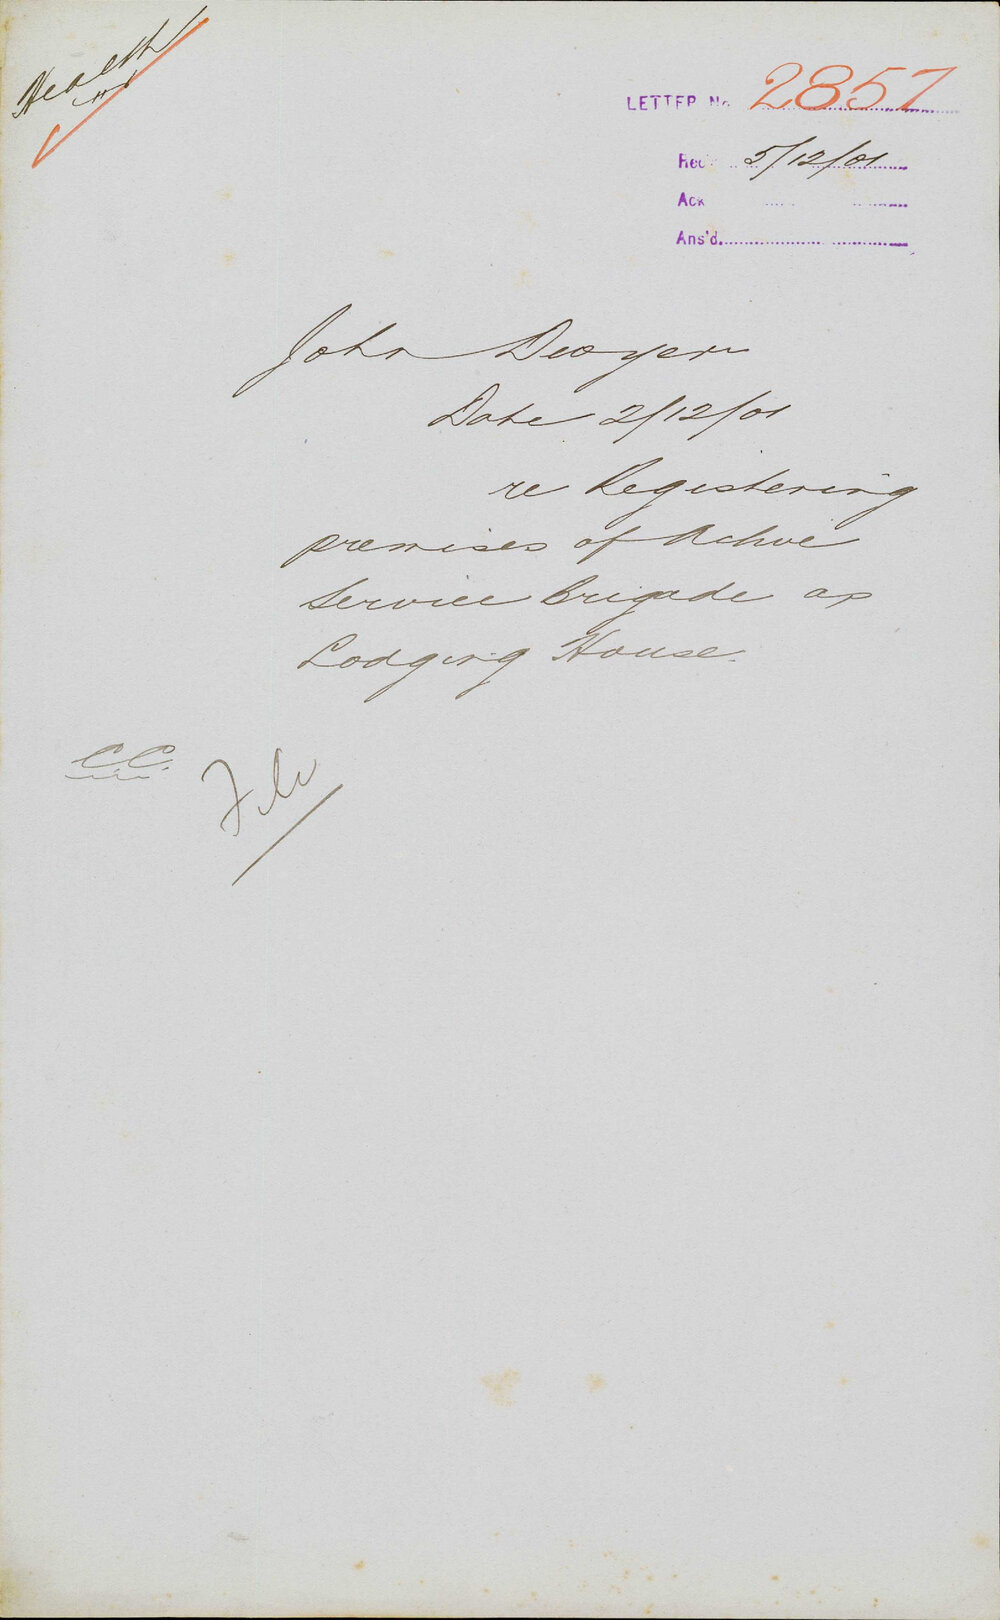 Health
LETTER No. 2857
Rec'd 5/12/01
Ack
Ans'd.
John Dwyer
Date 2/12/01
re Registering
premises of Active
Service Brigade as
Lodging House.
C.C.
File